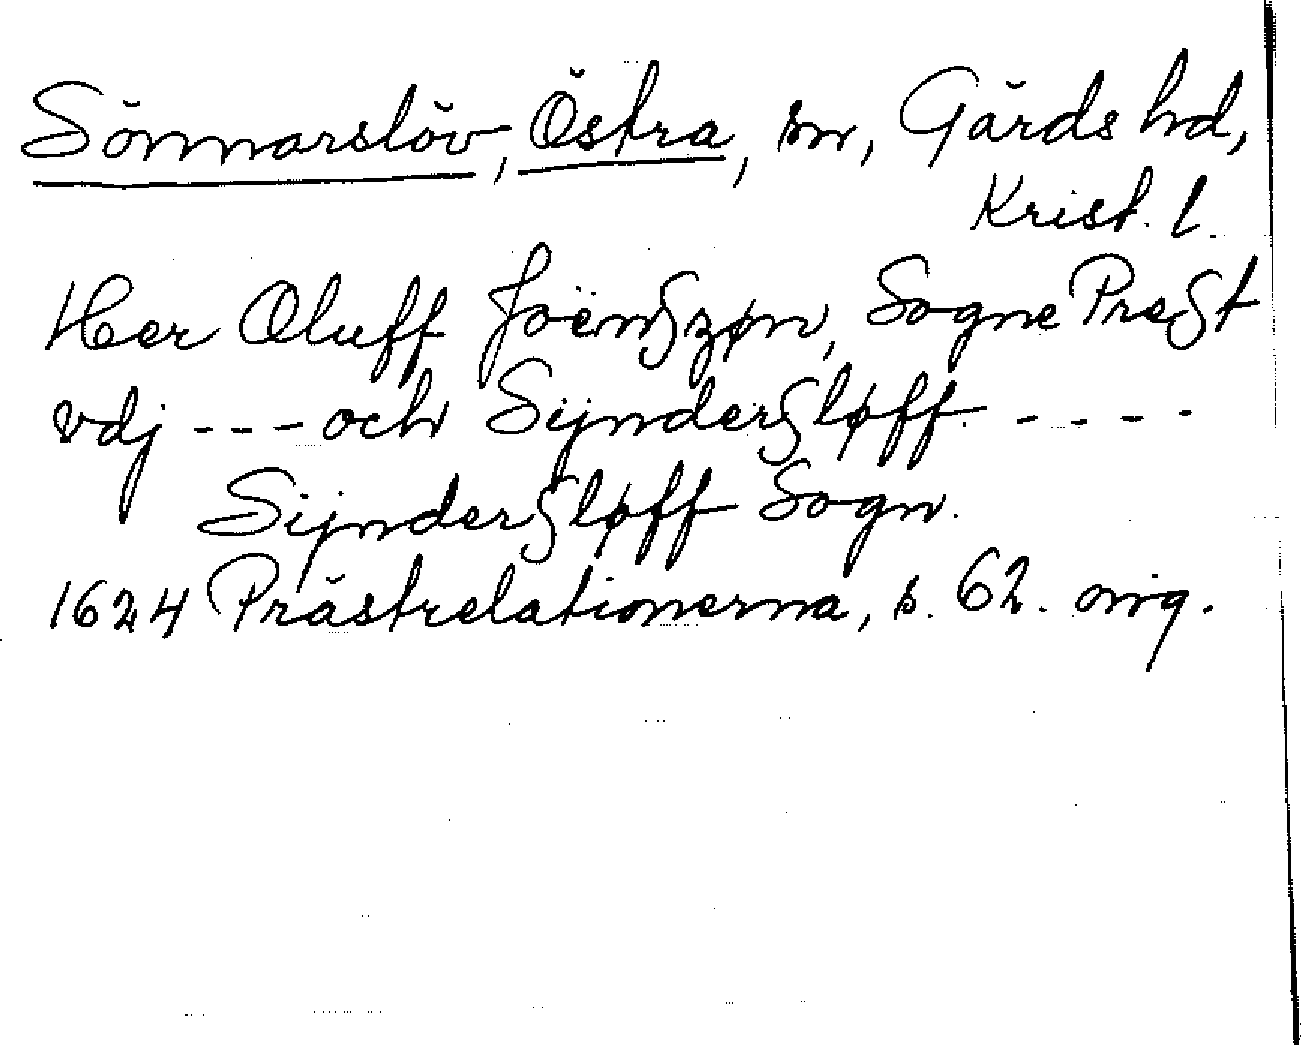 Sönnarslöv, Östra, sn, Gärds hd,
Krist. l.
Her Oluff Joënßzøn, Sogne Preßt
vdj --- och Sijnderßløff ----
Sijnderßløff Sogn.
1624 Prästrelationerna, s. 62. orig.